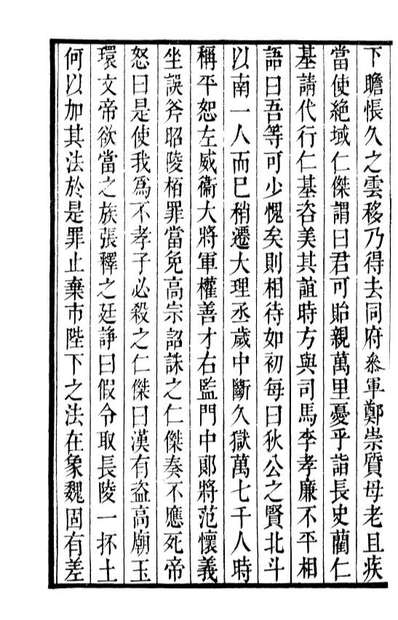 下瞻悵久之雲移乃得去同府叅軍鄭崇質母老且疾
當使絶域仁傑謂曰君可貽親萬里憂乎詣長史藺仁
基請代行仁基咨美其誼時方與司馬李孝廉不平相
語曰吾等可少愧矣則相待如初每曰狄公之賢北斗
以南一人而已稍遷大理丞歲中斷久獄萬七千人時
稱平恕左威衞大將軍權善才右監門中郎將范懷義
坐誤斧昭陵栢罪當免高宗詔誅之仁傑奏不應死帝
怒曰是使我爲不孝子必殺之仁傑曰漢有盜高廟玉
環文帝欲當之族張釋之廷諍曰假令取長陵一抔土
何以加其法於是罪止棄市陛下之法在象魏固有差